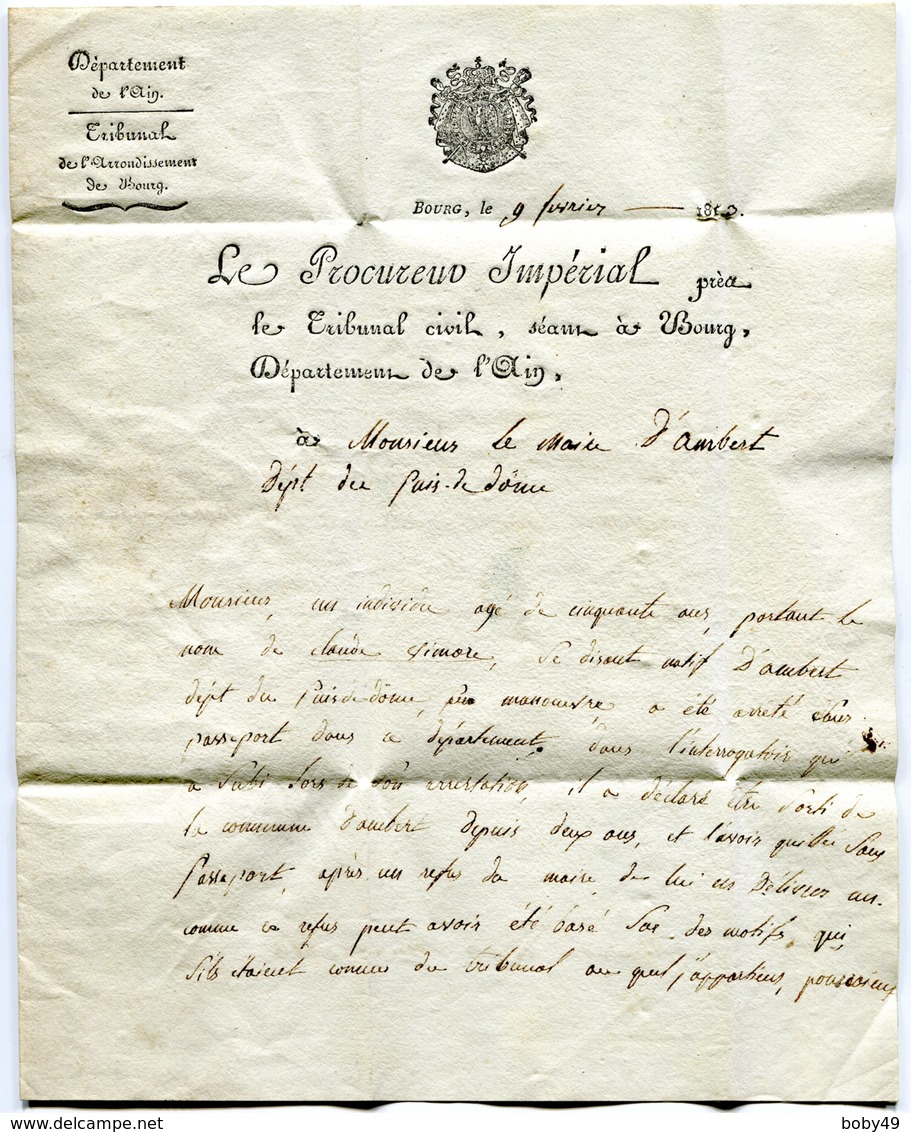 Département
de l'Ain.
Tribunal
de l'Arrondissement
de Bourg.
BOURG, le 9 fevrier 1813.
Le Procureur Impérial près
le Tribunal civil, séant à Bourg,
Département de l'Ain,
à Monsieur le maire D'ambert
Dépt. du Puis-de dôme
Monsieur, un individu agé de cinquante ans, portant le
nom de claude Simore, Se disant natif D'ambert
dépt du Puis de dôme, manoeuvre a été arreté Sans
passeport dans ce département. dans l'interrogatoir qu'il
a Subi lors de Son arrestation, il a déclaré être Sorti de
la commune d'ambert depuis deux ans, et l'avoir quittée Sans
Passeport, après un refus du maire de lui en Délivrer un.
comme ce refus peut avoir été basé Sur des motifs qui
S'ils étaient connus du tribunal au quel j'appartiens, pourroient
delcampe.net
boby49